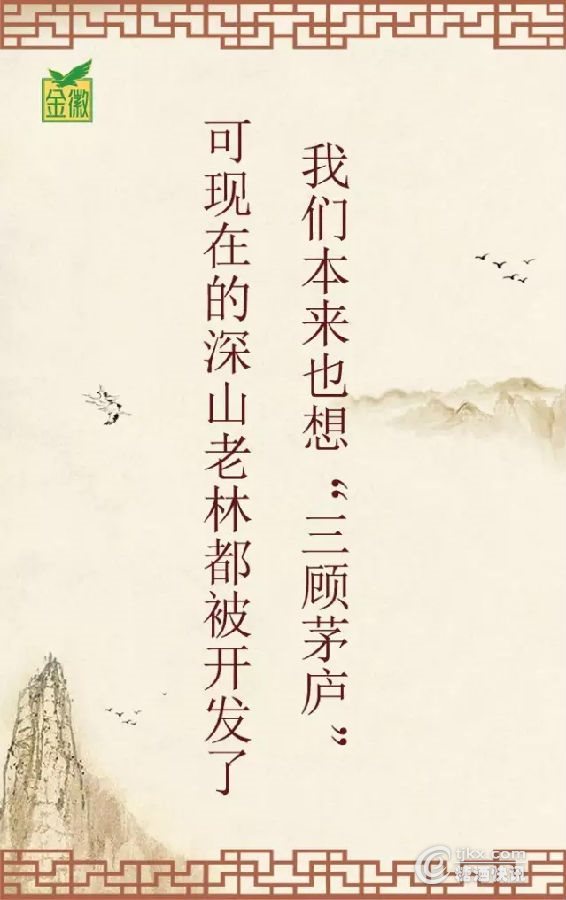 金徽
我们本来也想“三顾茅庐”
可现在的深山老林都被开发了
tjkx.com